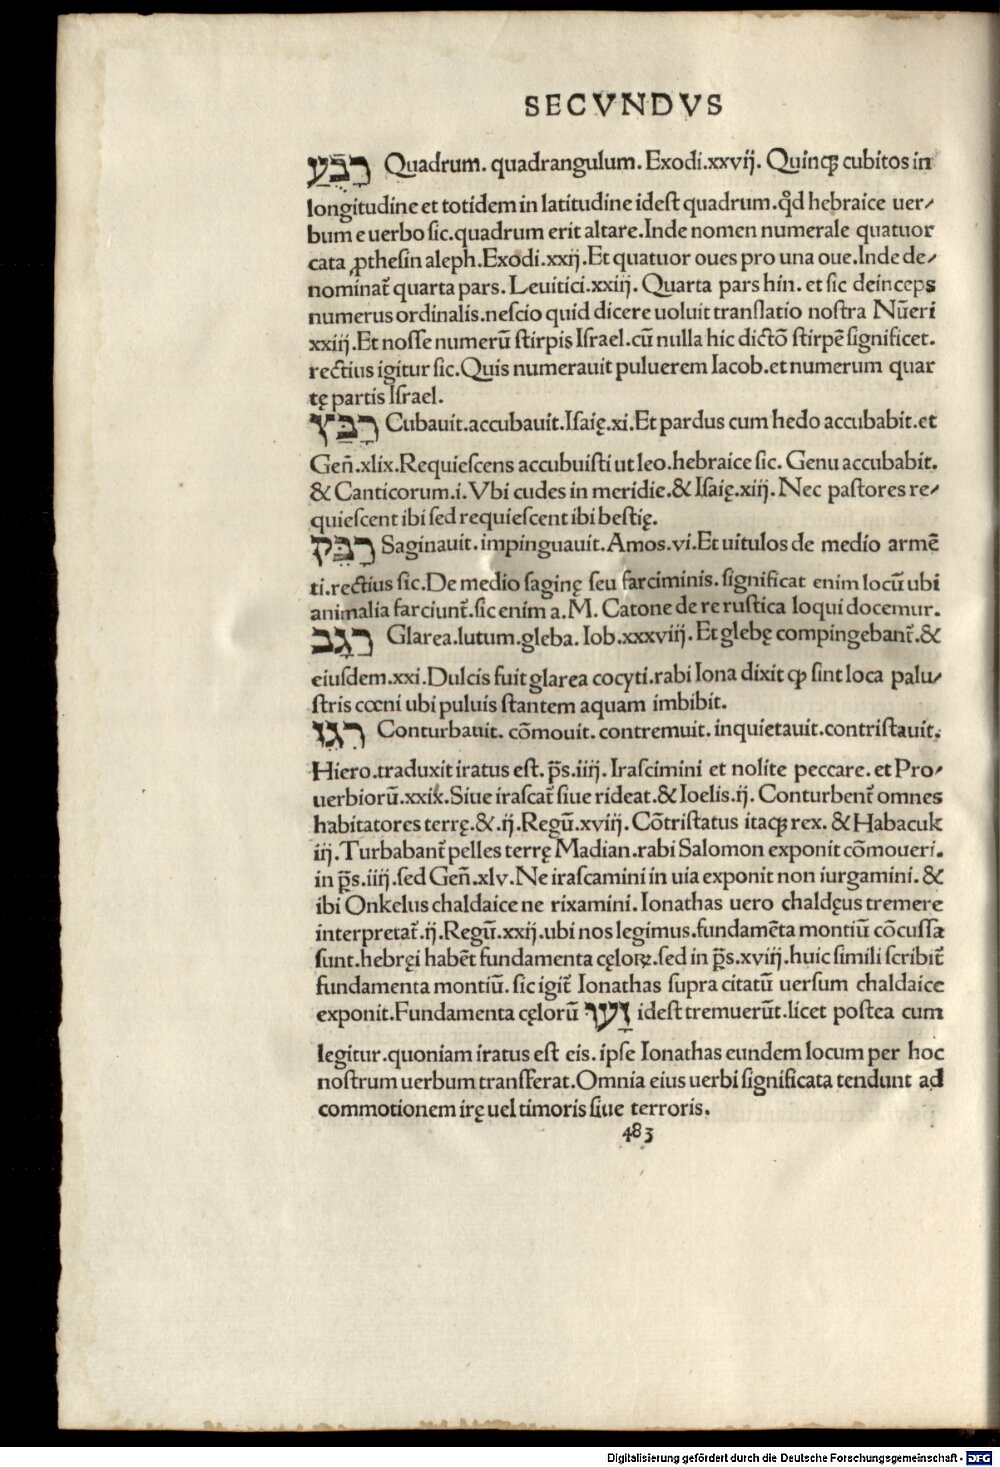 SECVNDVS
רָבֻּעַ Quadrum. quadrangulum. Exodi.xxvij. Quinqꝫ cubitos in
longitudine et totidem in latitudine idest quadrum.qd̄ hebraice uer⸗
bum e uerbo sic.quadrum erit altare.Inde nomen numerale quatuor
cata ꝓthesin aleph.Exodi.xxij.Et quatuor oues pro una oue.Inde de⸗
nominat᷑ quarta pars. Leuitici.xxiij. Quarta pars hin. et sic deinceps
numerus ordinalis.nescio quid dicere uoluit translatio nostra Nūeri
xxiij.Et nosse numerū stirpis Israel.cū nulla hic dictō stirpē significet.
rectius igitur sic.Quis numerauit puluerem Iacob.et numerum quar
tę partis Israel.
רָבַּץ Cubauit.accubauit.Isaię.xi.Et pardus cum hedo accubabit.et
Geñ.xlix.Requiescens accubuisti ut leo.hebraice sic. Genu accubabit.
& Canticorum.i.Vbi cudes in meridie.& Isaię.xiij. Nec pastores re⸗
quiescent ibi sed requiescent ibi bestię.
רָבֵּק Saginauit.impinguauit.Amos.vi.Et uitulos de medio armē
ti.rectius sic.De medio saginę seu farciminis.significat enim locū ubi
animalia farciunt᷑.sic enim a.M. Catone de re rustica loqui docemur.
רֶגָב Glarea.lutum.gleba. Iob.xxxviij. Et glebę compingebant᷑.&
eiusdem.xxi.Dulcis fuit glarea cocyti.rabi Iona dixit ꝙ sint loca palu⸗
stris cœni ubi puluis stantem aquam imbibit.
רִגֵז Conturbauit. cōmouit. contremuit. inquietauit.contristauit.
Hiero.traduxit iratus est. p̄s.iiij. Irascimini et nolite peccare. et Pro⸗
uerbiorū.xxix.Siue irascat᷑ siue rideat.& Ioelis.ij. Conturbent᷑ omnes
habitatores terrę.&.ij.Regū.xviij. Cōtristatus itaqꝫ rex. & Habacuk
iij.Turbabant᷑ pelles terrę Madian.rabi Salomon exponit cōmoueri.
in p̄s.iiij.sed Geñ.xlv.Ne irascamini in uia exponit non iurgamini. &
ibi Onkelus chaldaice ne rixamini. Ionathas uero chaldęus tremere
interpretat᷑.ij.Regū.xxij.ubi nos legimus.fundamēta montiū cōcussa
sunt.hebręi habēt fundamenta cęloꝝ.sed in p̄s.xviij.huic simili scribit᷑
fundamenta montiū. sic igit᷑ Ionathas supra citatū uersum chaldaice
exponit.Fundamenta cęlorū idest tremuerūt.licet postea cum
legitur.quoniam iratus est eis. ipse Ionathas eundem locum per hoc
nostrum uerbum transferat.Omnia eius uerbi significata tendunt ad
commotionem irę uel timoris siue terroris.
483
Digitalisierung gefördert durch die Deutsche Forschungsgemeinschaft - DFG